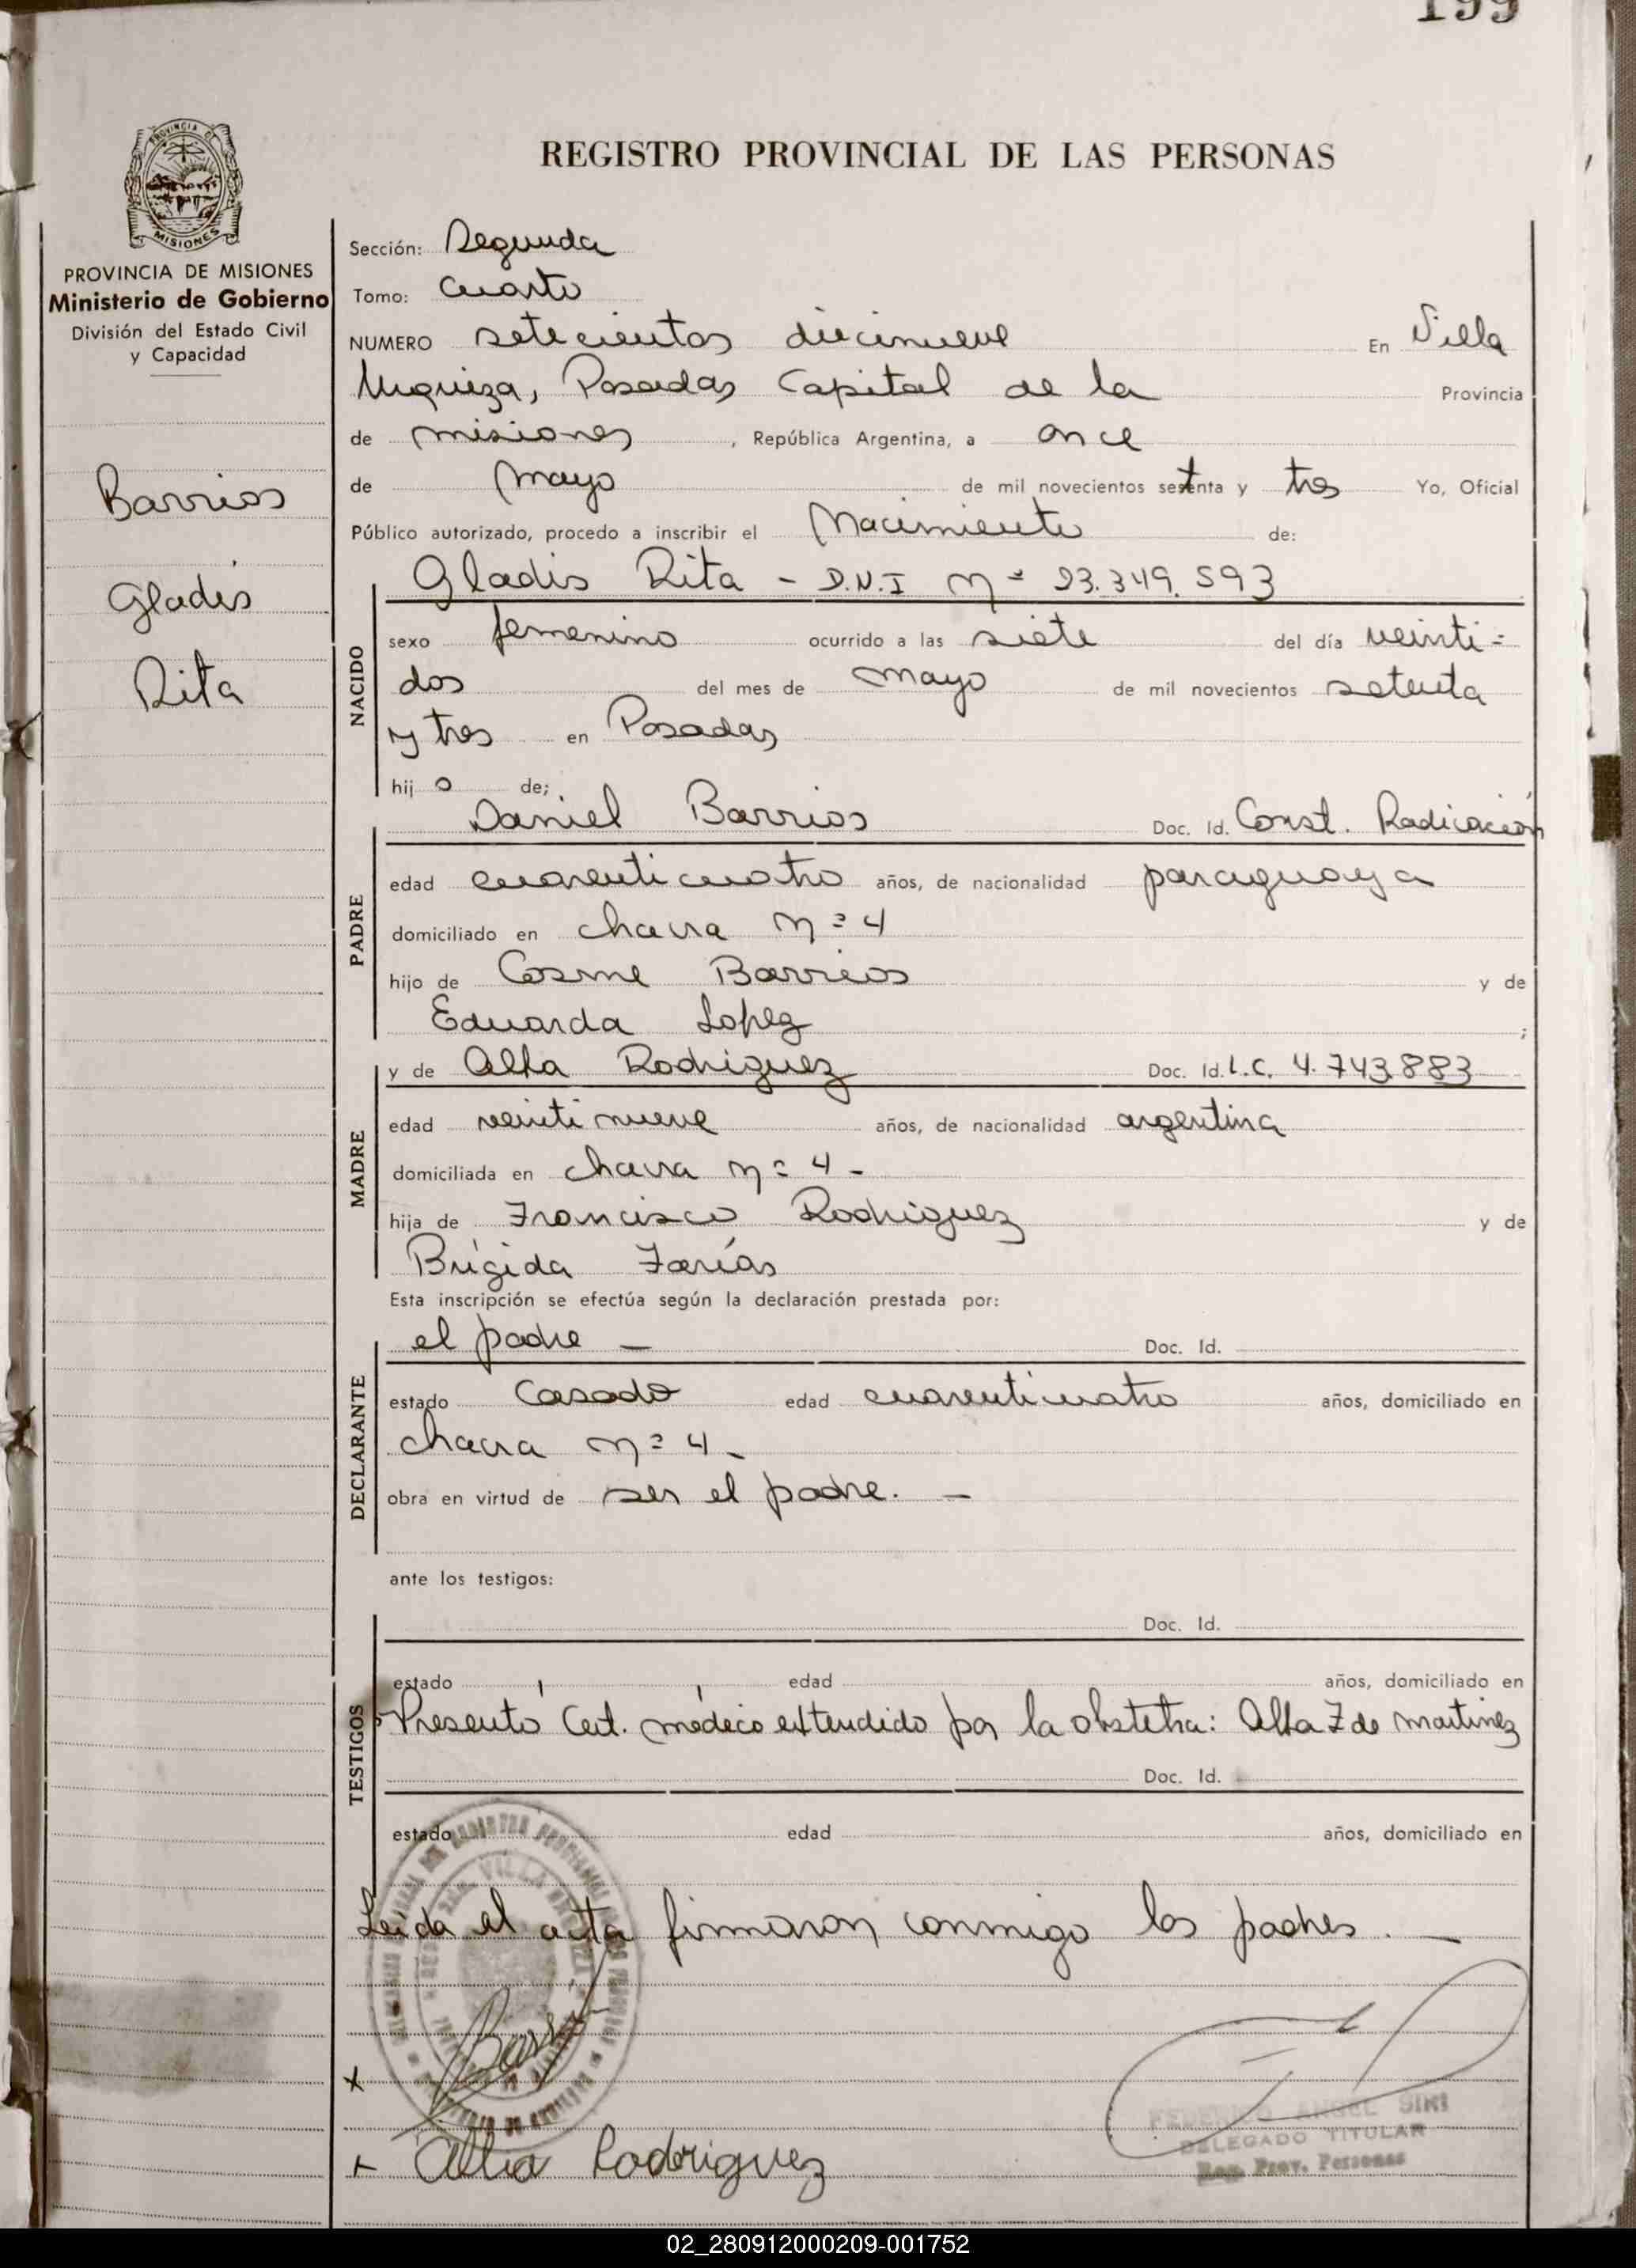 199
REGISTRO PROVINCIAL DE LAS PERSONAS
PROVINCIA DE MISIONES
PROVINCIA DE MISIONES
Ministerio de Gobierno
División del Estado Civil
y Capacidad
Barrios
Gladis
Rita
Sección: Segunda
Tomo: Cuarto
NUMERO setecientos diecinueve En Villa
Urquiza, Posadas Capital de la Provincia
de misiones, República Argentina, a once
de mayo de mil novecientos setenta y tres Yo, Oficial
Público autorizado, procedo a inscribir el Nacimiento de:
Gladis Rita - D.N.I Nº 23.349.593
NACIDO
sexo femenino ocurrido a las siete del día veinti=
dos del mes de mayo de mil novecientos setenta
y tres en Posadas
hij o de;
Daniel Barrios Doc. Id. Const. Radicación
PADRE
edad cuarenticuatro años, de nacionalidad paraguaya
domiciliado en chacra nº 4
hijo de Cosme Barrios y de
Eduarda Lopez ;
y de Alba Rodriguez Doc. Id. L.C. 4.743.883
MADRE
edad veintinueve años, de nacionalidad argentina
domiciliada en chacra nº 4 -
hija de Francisco Rodriguez y de
Brígida Farías
Esta inscripción se efectúa según la declaración prestada por:
el padre - Doc. Id.
DECLARANTE
estado Casado edad cuarenticuatro años, domiciliado en
chacra nº 4 -
obra en virtud de ser el padre. -
ante los testigos:
Doc. Id.
TESTIGOS
estado edad años, domiciliado en
Presentó Cert. médico extendido por la obstetra: Alba Z de Martinez
Doc. Id.
estado edad años, domiciliado en
Leida el acta firmaron conmigo los padres. -
x
x Alba Rodriguez
FEDERICO ANGEL SIRI
DELEGADO TITULAR
Reg. Prov. Personas
02_280912000209-001752